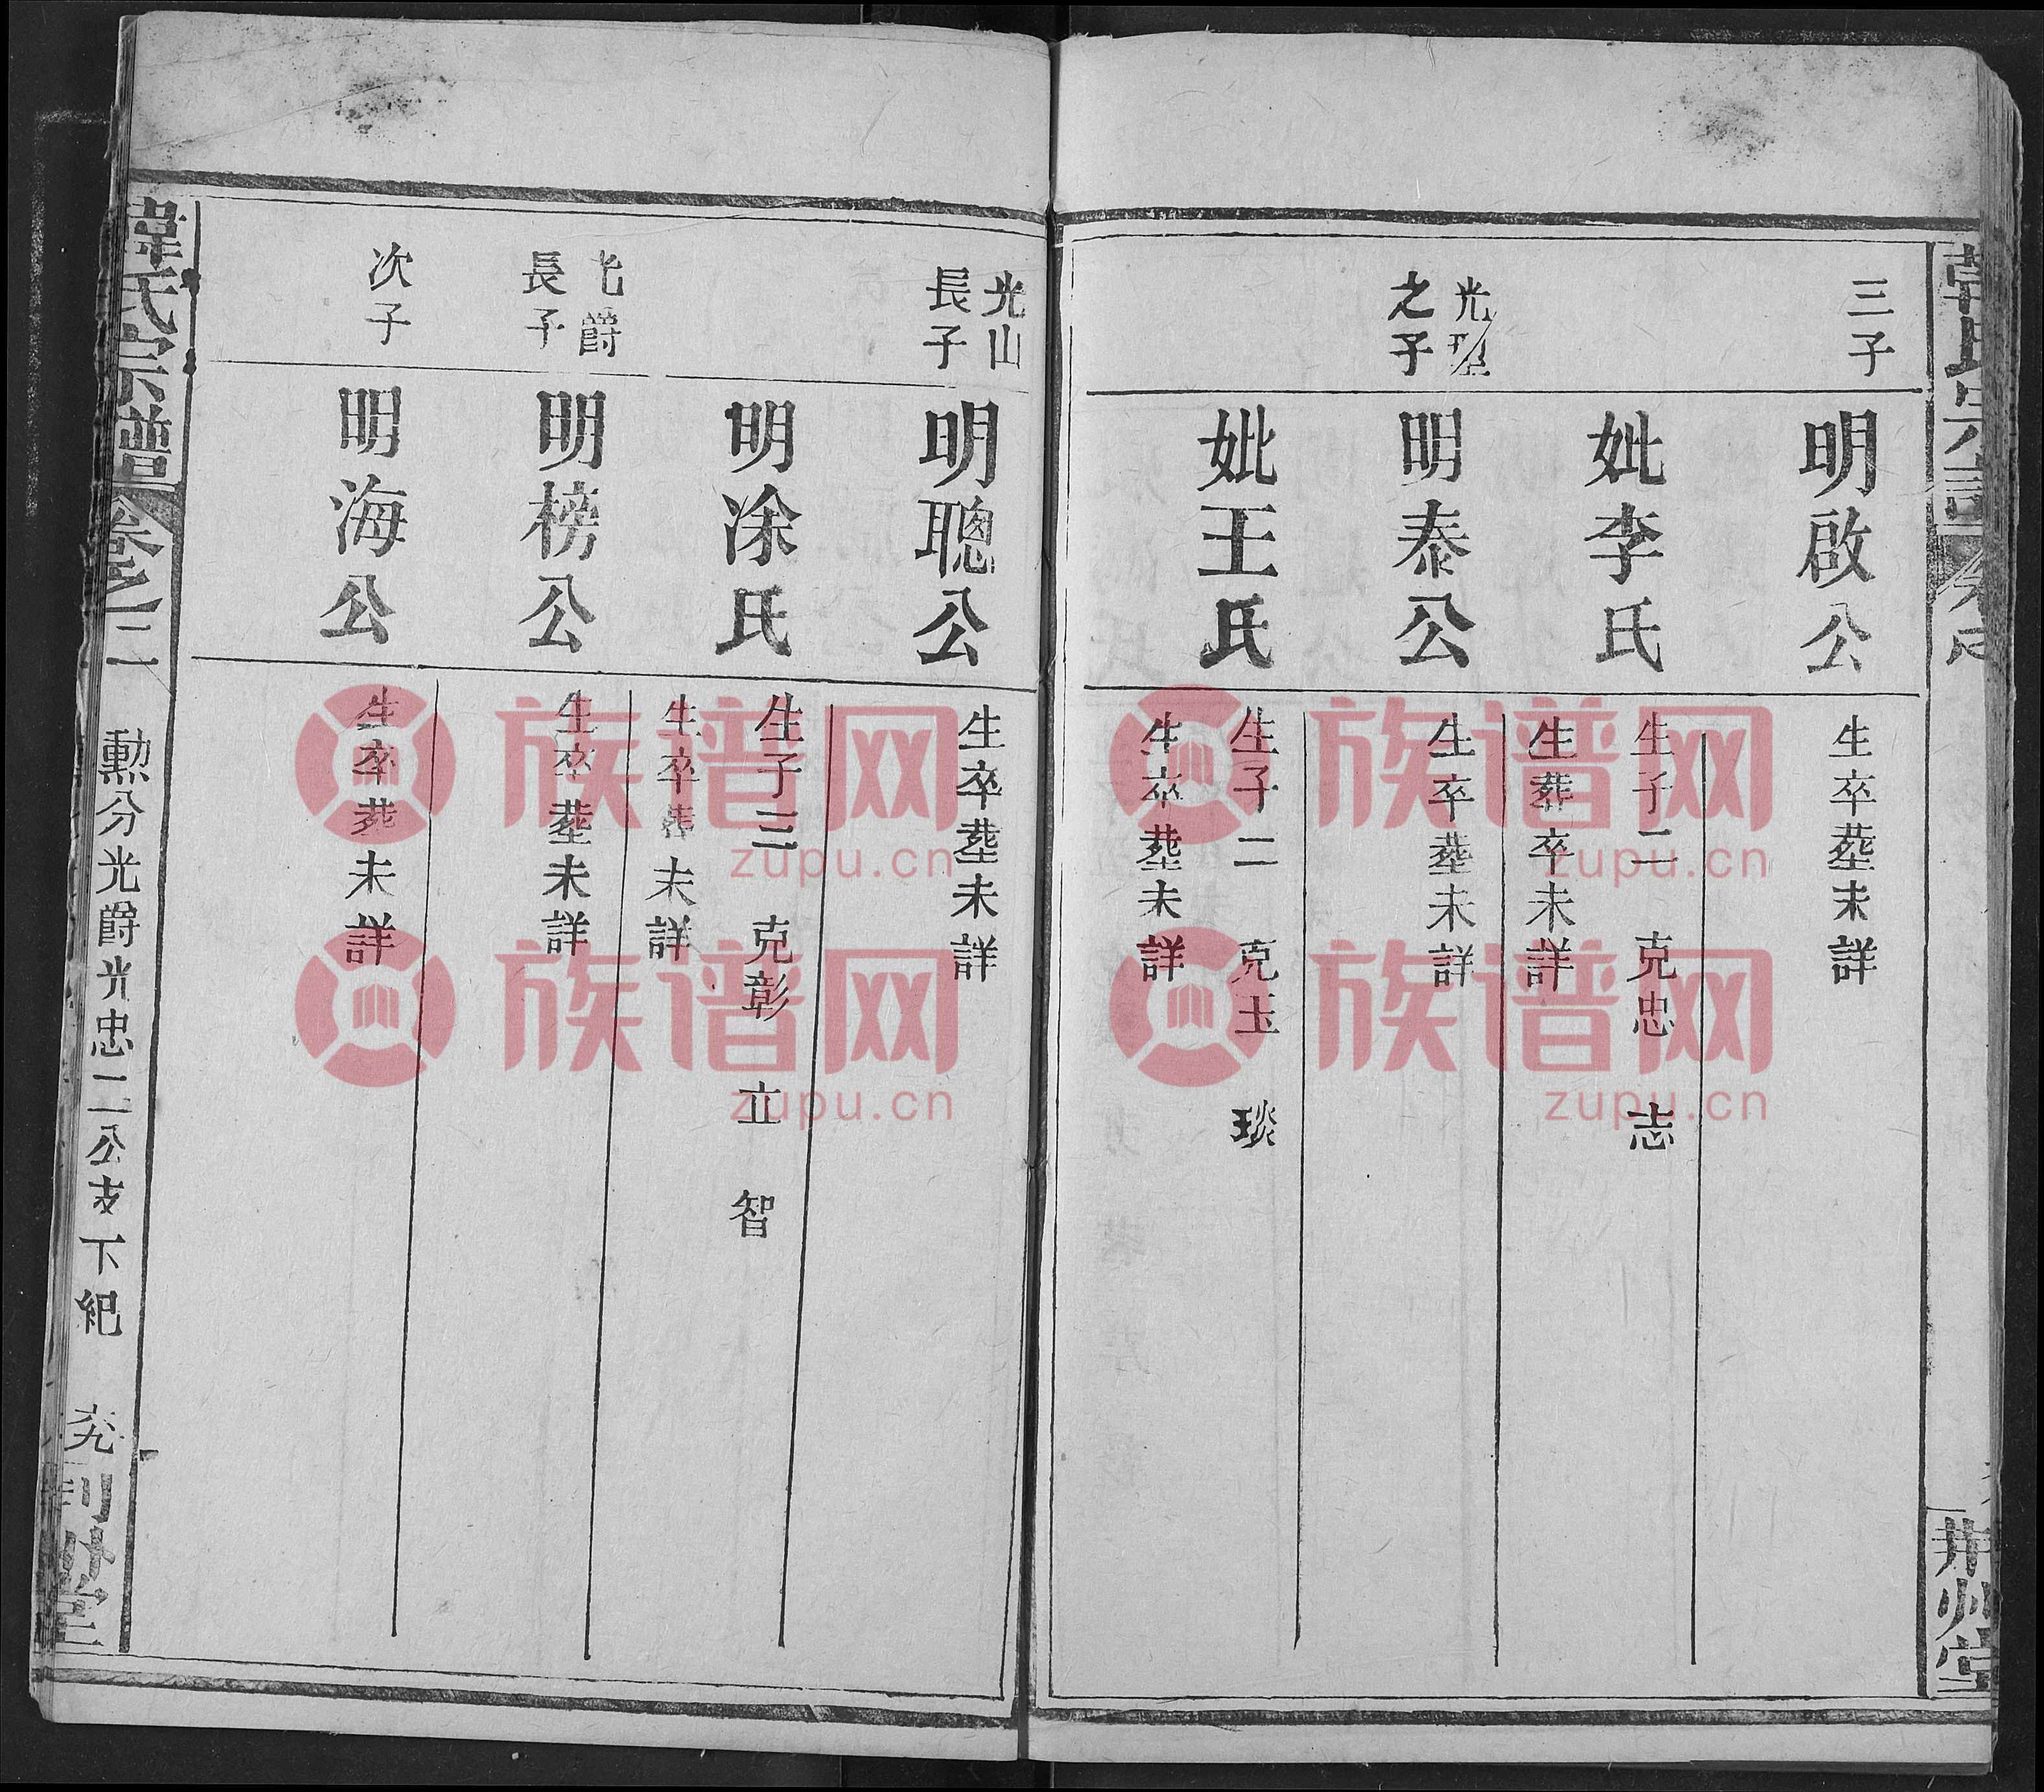 三子
明啟公
生卒塟未詳
妣李氏
生子二 克忠 志
生葬卒未詳
光
之子
明泰公
生卒塟未詳
妣王氏
生子二 克玉 琰
生卒塟未詳
光山
長子
明聰公
生卒塟未詳
明涂氏
生子三 克彰 立 智
生卒葬未詳
光爵
長子
明榜公
生卒塟未詳
次子
明海公
生卒葬未詳
韓氏宗譜
卷之二
勲分光爵光忠二公支下紀
荆州堂
族谱网
zupu.cn
族谱网
zupu.cn
族谱网
zupu.cn
族谱网
zupu.cn